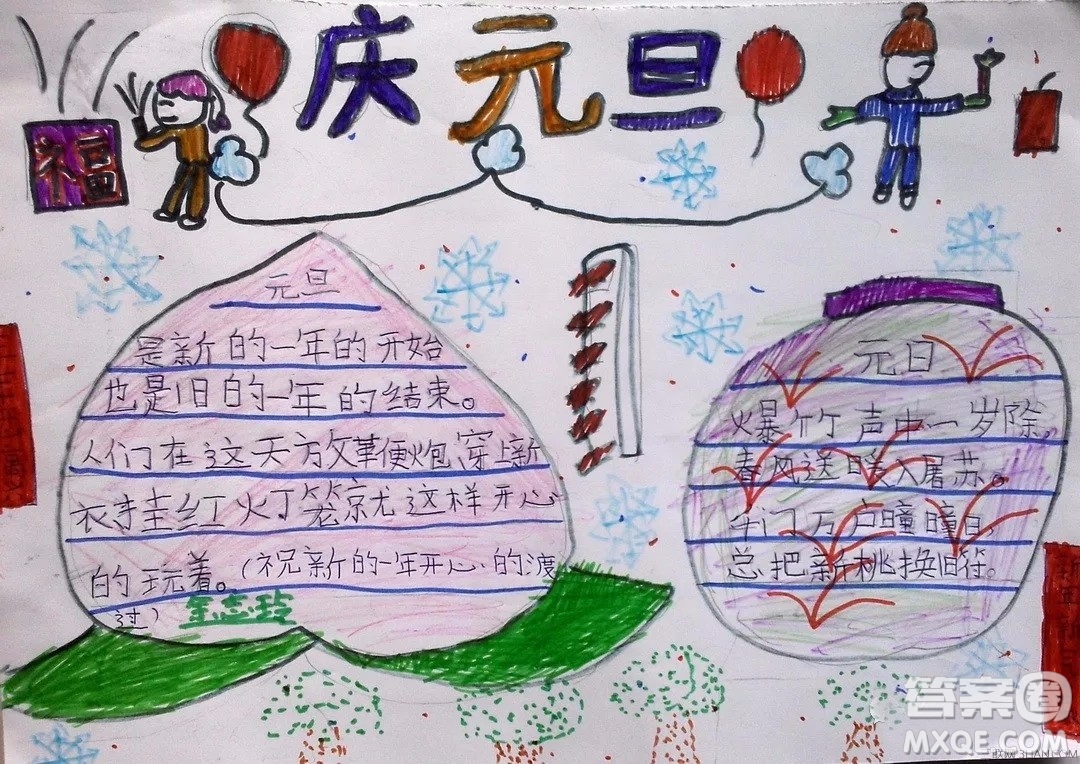 庆元旦
福
元旦
是新的一年的开始
也是旧的一年的结束。
人们在这天方攵革便炮穿上新
衣挂红灯笼就这样开心
的玩着。(祝新的一年开心的渡
过)
元日
爆竹声中一岁除,
春风送暖入屠苏。
千门万户曈曈日,
总把新桃换旧符。
答案圈
MXQE.COM